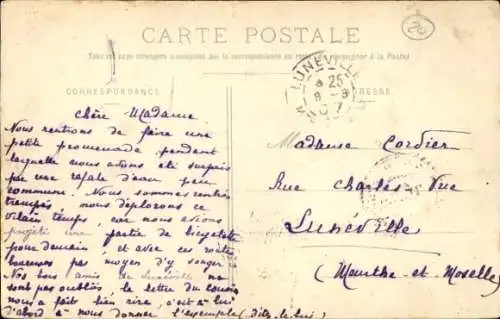 CARTE POSTALE
Tous les pays étrangers n'acceptent pas la correspondance au recto (se renseigner à la Poste)
CORRESPONDANCE
ADRESSE
LUNEVILLE
8 25
8 - 9
07
Chère Madame
Nous rentrions de faire une
petite promenade pendant
laquelle nous avons été surpris
par une rafale d'eau peu
commune. Nous sommes rentrés
trempés, nous déplorons ce
vilain temps, car nous avions
projeté une partie de bicyclette
pour demain et avec ces routes
pas moyen d'y songer
Nos bons amis de Lunéville ne
sont pas oubliés. la lettre du cousin
nous a fait bien rire, c'est à lui
d'abord à nous donner l'exemple (dites le lui)
Madame Cordier
Rue Charles Vue
Lunéville
(Meurthe-et-Moselle)